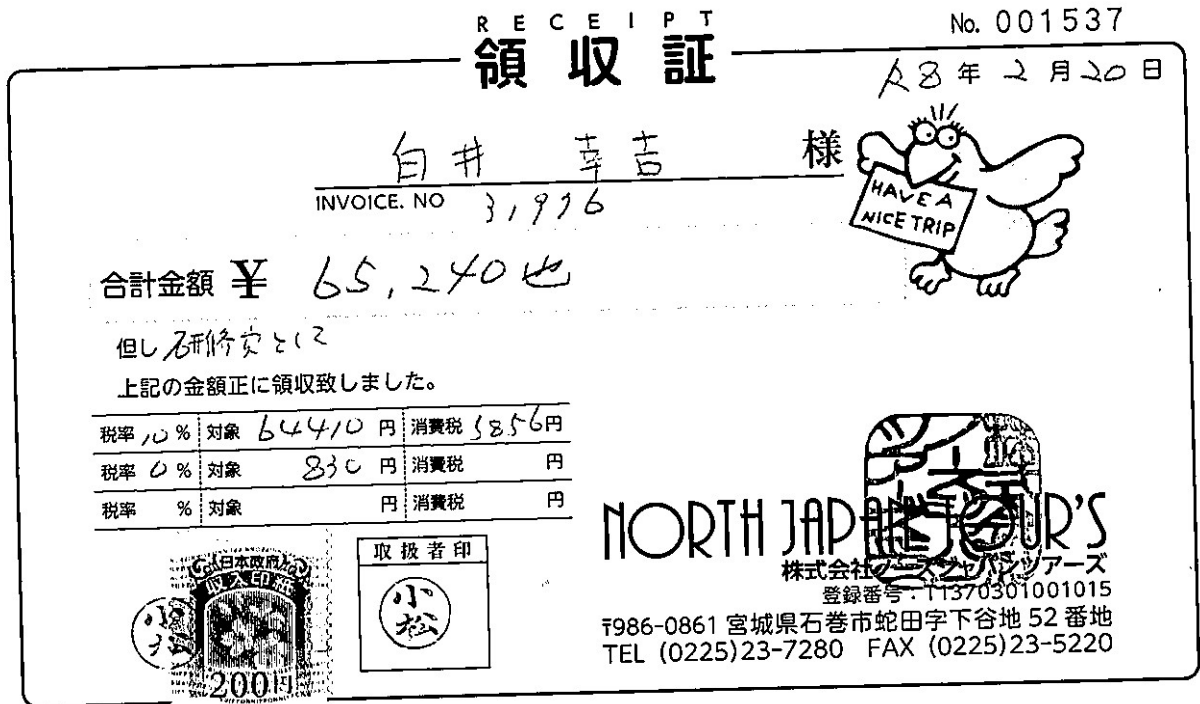 RECEIPT
領収証
No. 001537
R8年2月20日
白井 幸吉 様
INVOICE. NO 31,996
HAVE A
NICE TRIP
合計金額 ¥ 65,240也
但し 研修費として
上記の金額正に領収致しました。
税率10% 対象 64410円 消費税 5856円
税率0% 対象 830円 消費税 円
税率 % 対象 円 消費税 円
取扱者印
小松
日本政府
収入印紙
200円
小松
NORTH JAPAN TOUR'S
株式会社ノースジャパンツアーズ
登録番号:T1370301001015
〒986-0861 宮城県石巻市蛇田字下谷地52番地
TEL (0225)23-7280 FAX (0225)23-5220